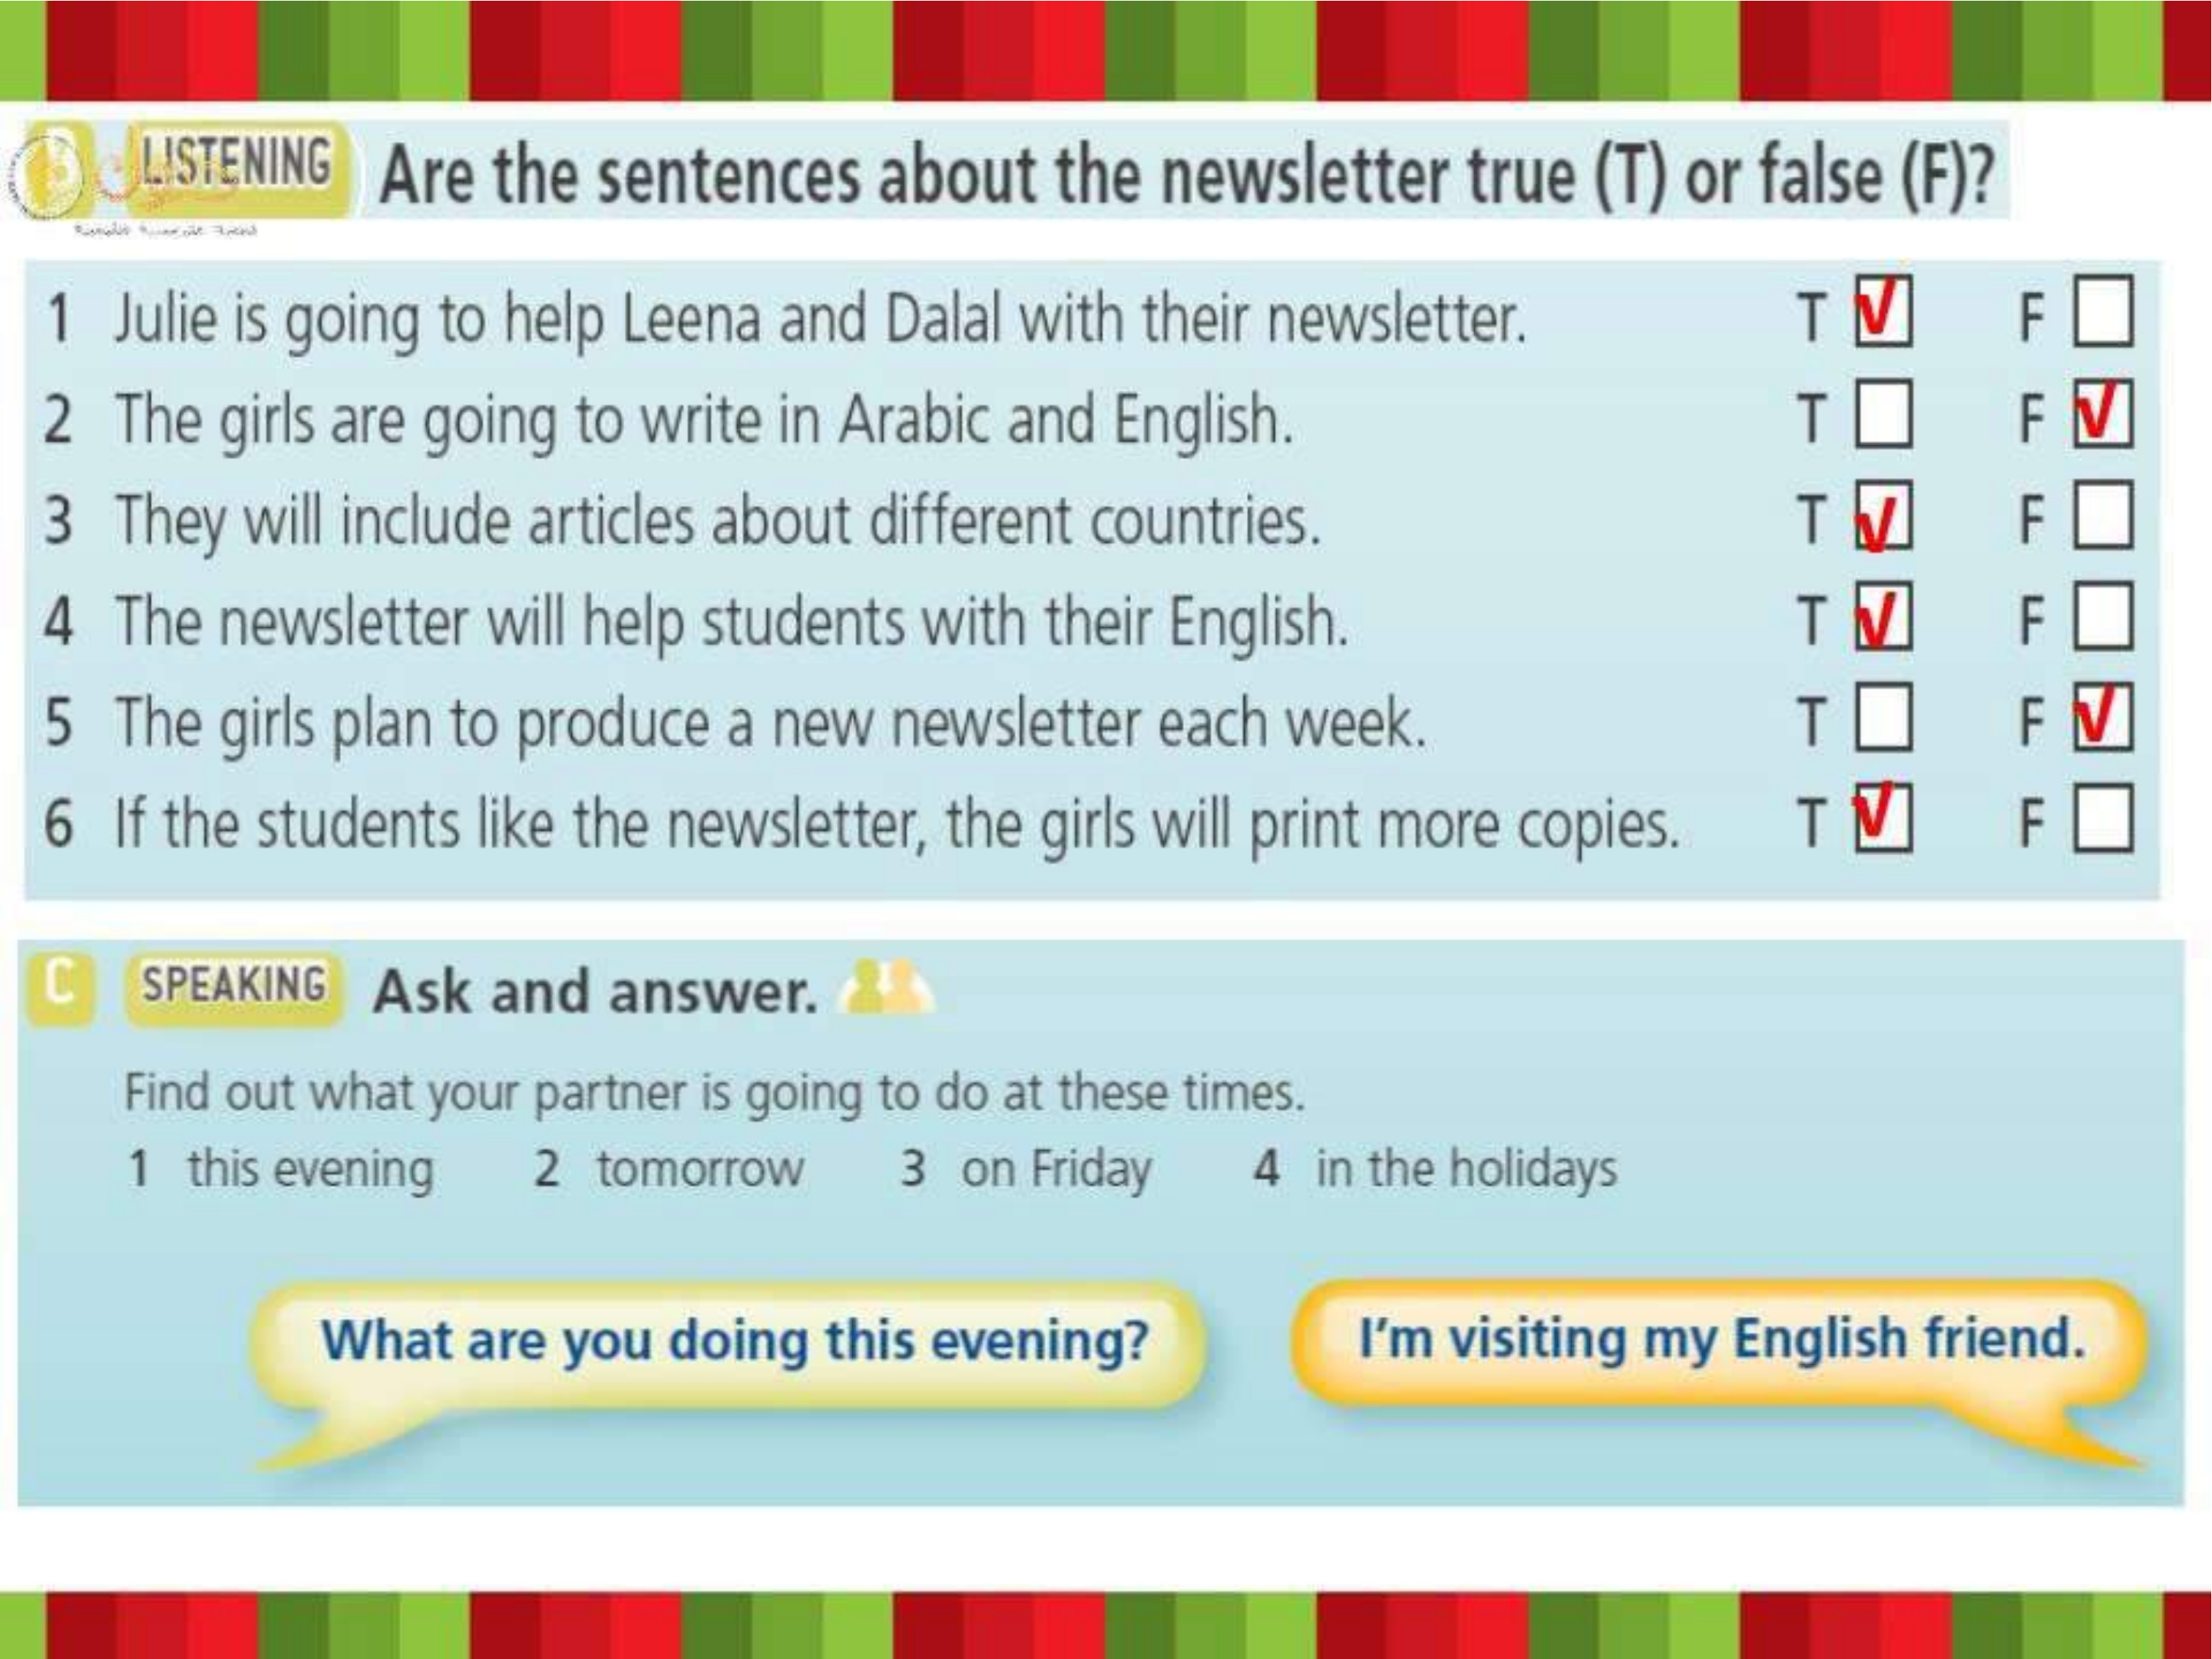 LISTENING Are the sentences about the newsletter true (T) or false (F)?
1 Julie is going to help Leena and Dalal with their newsletter. T √ F
2 The girls are going to write in Arabic and English. T F √
3 They will include articles about different countries. T √ F
4 The newsletter will help students with their English. T √ F
5 The girls plan to produce a new newsletter each week. T F √
6 If the students like the newsletter, the girls will print more copies. T √ F
C SPEAKING Ask and answer.
Find out what your partner is going to do at these times.
1 this evening 2 tomorrow 3 on Friday 4 in the holidays
What are you doing this evening? I'm visiting my English friend.